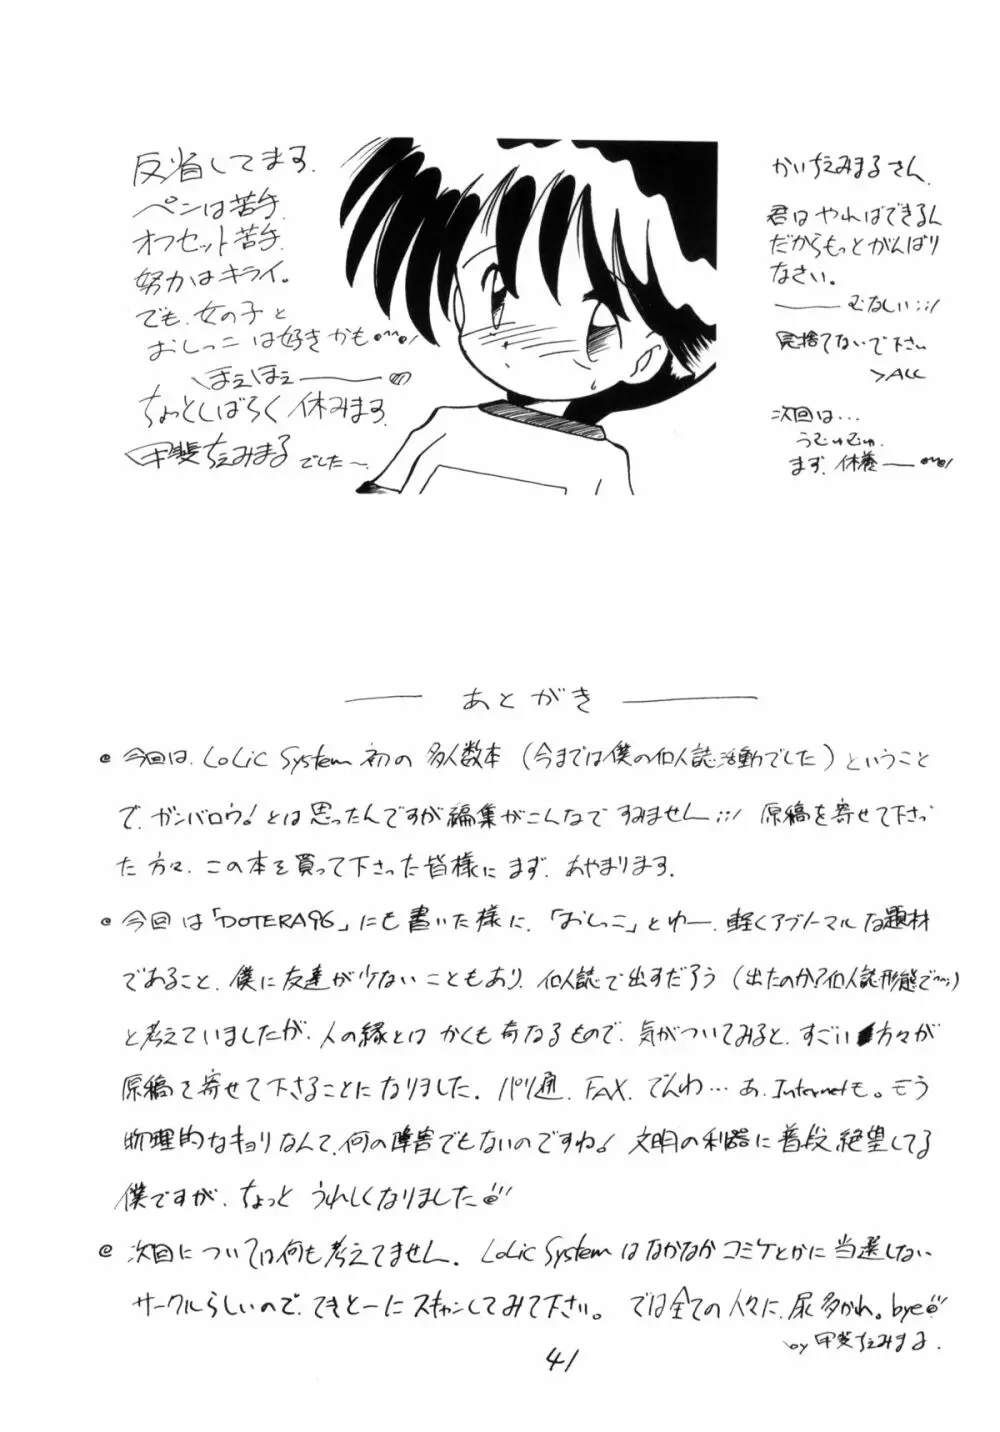 反省してます.
ペンは苦手.
オフセット苦手.
努力はキライ。
でも、女の子と
おしっこ は好きかも
ほえほえ
ちょっとしばらく 休みます.
甲斐ちえみまる でした〜.
かいちえみまるさん.
君は やればできるん
だからもっとがんばり
なさい。
むなしい;;!
見捨てないで下さい
>ALL
次回は...
うむゅむゅ.
まず. 休養
あとがき
今回は. LoLic System 初の 多人数本 (今までは僕の個人誌活動でした) ということ
で. ガンバロウ! とは思ったんですが編集がこんなで すみません;;! 原稿を寄せて下さっ
た 方々. この本を 買って下さった皆様に まず. あやまります.
今回は「DOTERA96」にも書いた様に. 「おしっこ」とゆー. 軽くアブノーマルな題材
であること. 僕に友達が少ないこともあり. 個人誌で出すだろう (出たのか?個人誌形態で〜;)
と考えていましたが. 人の縁とは かくも奇なるもので. 気がついてみると. すごい 方々が
原稿を寄せて下さることになりました. パソ通. FAX. でんわ... あ. Internetも。もう
物理的なキョリなんて. 何の障害でもないのですね! 文明の利器に普段絶望してる
僕ですが. ちょっと うれしくなりました
次回については何も考えてません. LoLic System はなかなか コミケとかに 当選しない
サークルらしいので. てきとーに スキャンしてみて下さい。 では全ての人々に. 尿多かれ。bye
by 甲斐ちえみまる.
41